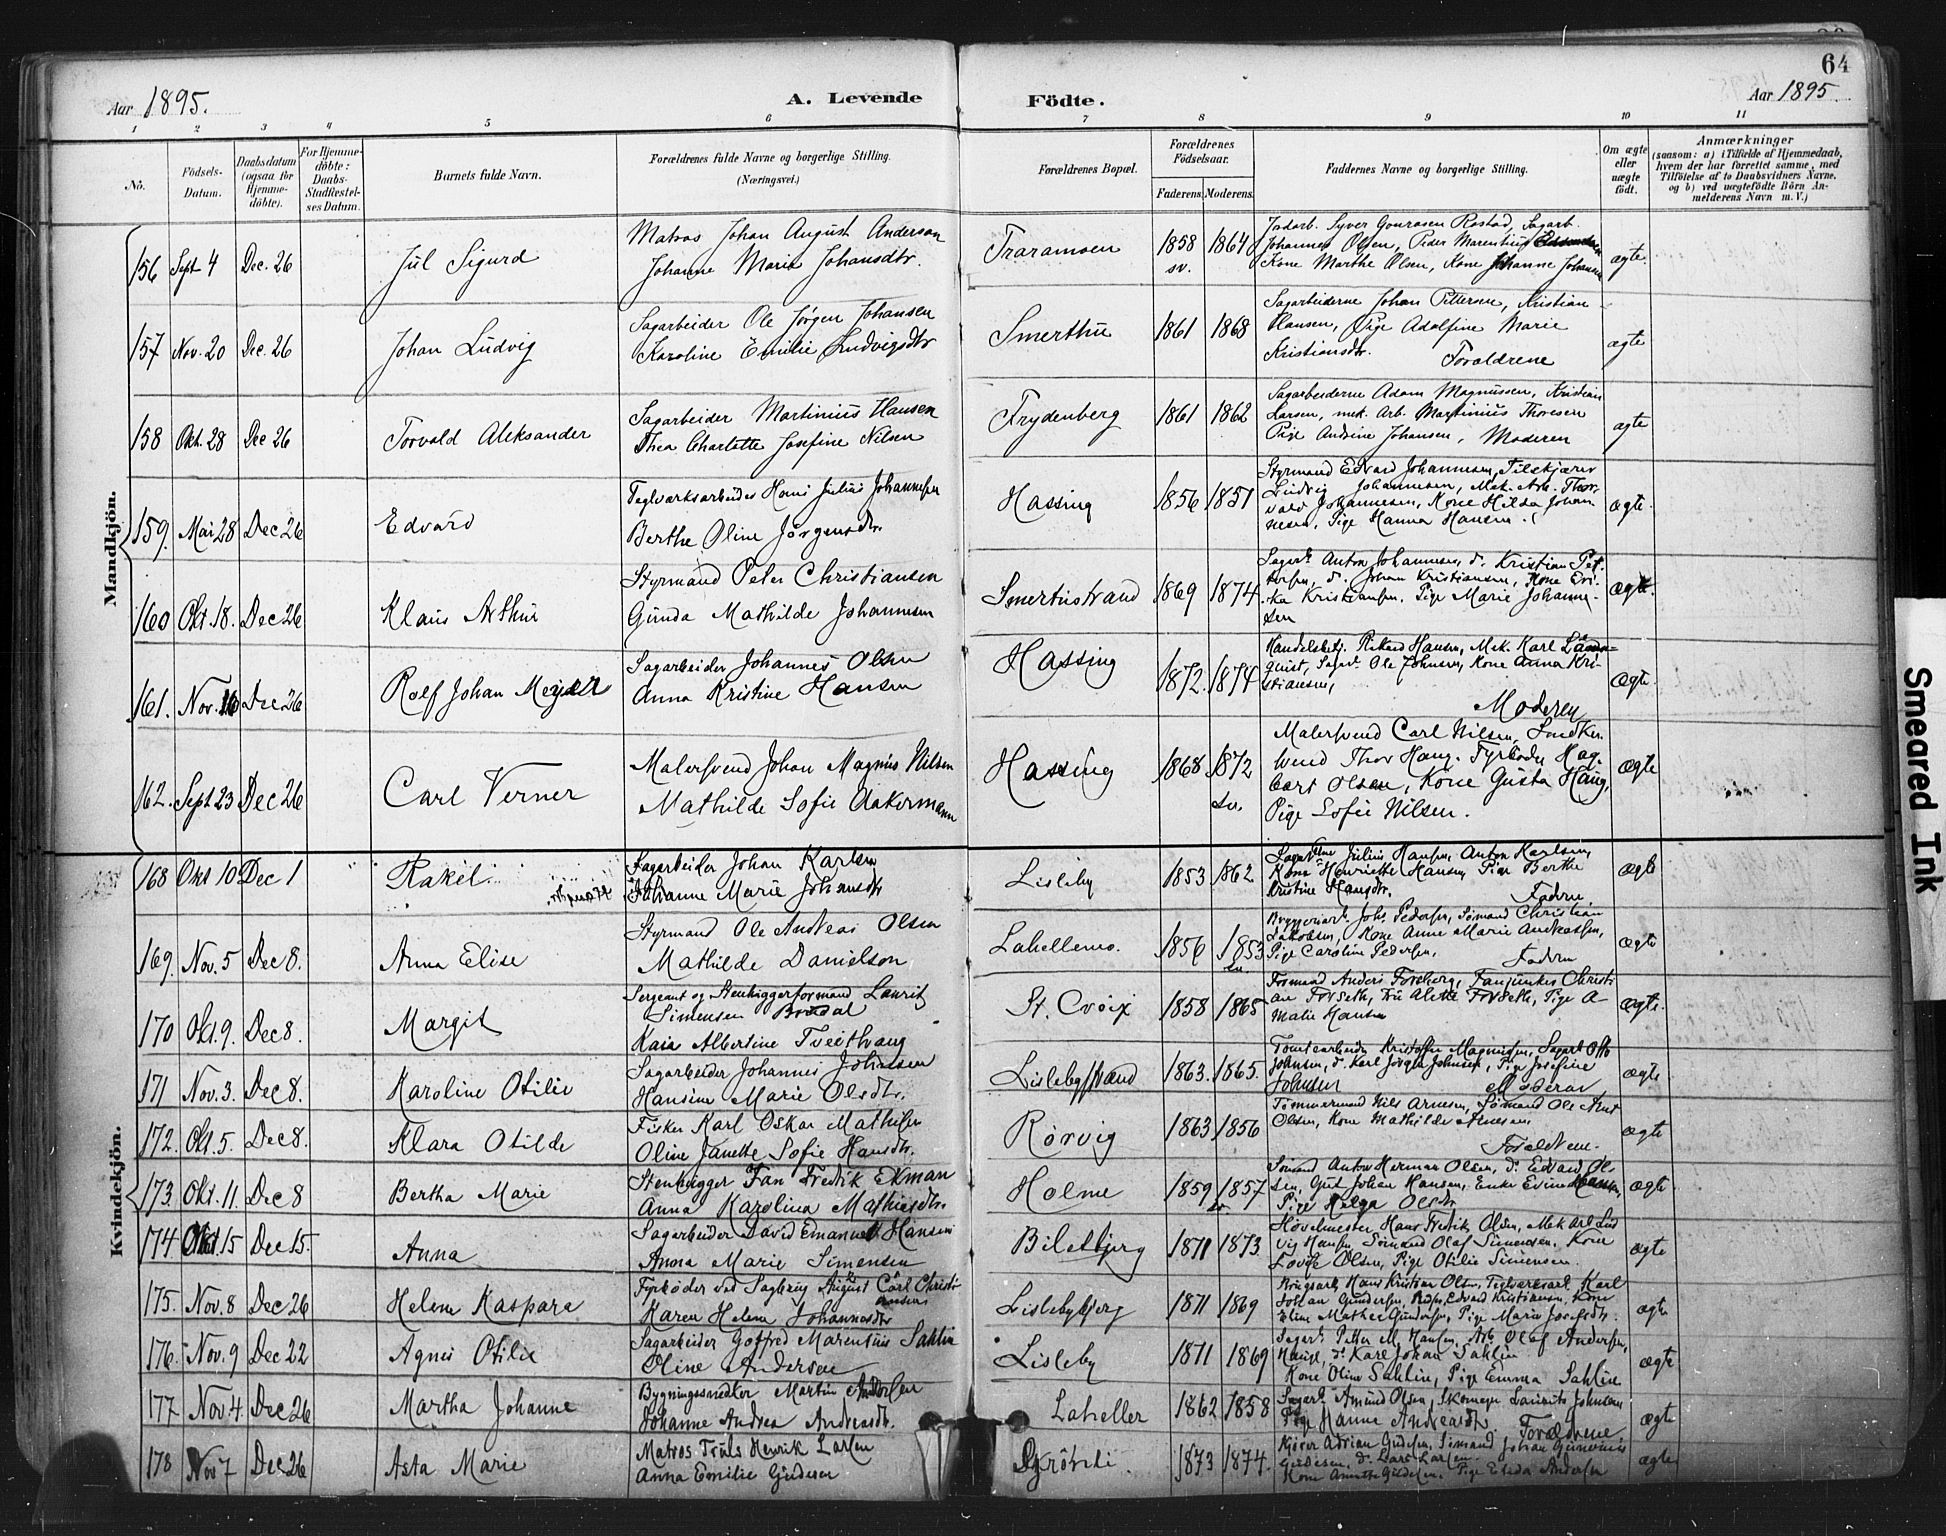 64
Aar 1895. A. Levende Födte. Aar 1895.
1 2 3 4 5 6 7 8 9 10 11
No. Födsels-Datum. Daabsdatum (ogsaa for Hjemme-döbte). For Hjemme-döbte: Daabs-Stadfæstel-ses Datum. Barnets fulde Navn. Forældrenes fulde Navne og borgerlige Stilling. (Næringsvei.) Forældrenes Bopæl. Forældrenes Födselsaar. Faderens Moderens. Faddernes Navne og borgerlige Stilling. Om ægte eller uægte født. Anmærkninger (saasom: a) i Tilfælde af Hjemmedaab, hvem der har forrettet samme, med Tilföielse af to Daabsvidners Navne, og b) ved uægtefödte Börn An-melderens Navn m. V.)
Mandkjön.
156 Sept 4 Dec. 26 Jul Sigurd
Matros Johan August Anderson
Johanne Marie Johansdtr.
Traramoen 1858 sv. 1864
Johannes Olsen, Peder Marentius
Kone Marthe Olsen, Kone Johanne Johansen
ægte.
157 Nov. 20 Dec. 26 Johan Ludvig
Sagarbeider Ole Jørgen Johansen
Karoline Emilie Ludvigsdtr
Smerthu 1861 1868
Sagarbeiderne Johan Pettersen, Kristian
Hansen, Pige Adolfine Marie
Kristiansdtr. Forældrene
ægte
158 Okt. 28 Dec 26 Torvald Aleksander
Sagarbeider Martinius Hansen
Thea Charlotte Josefine Nilsen
Frydenberg 1861 1862
Sagarbeiderne Adam Magnussen, Kristian
Larsen, mek. Arb. Martinius Thoresen
Pige Andrine Johansen, Moderen
ægte
159. Mai 28 Dec 26 Edvard
Teglværksarbeider Hans Julius Johannesen
Berthe Oline Jørgensdtr.
Hassing 1856 1851
Styrmand Edvard Johannesen,
Ludvig Johannesen, Mek. Arb. Thor-
vald Johannesen, Kone Hilda Johan
nesen, Pige Hanna Hansen.
ægte.
160 Okt. 18. Dec 26 Klaus Arthur
Styrmand Peter Christiansen
Gunda Mathilde Johannesen
Smertustrand 1869 1874
Sagarb. Anton Johannesen, d. Kristian Pet
tersen, d. Johan Kristiansen, Kone Eri-
ka Kristiansen, Pige Marie Johanne-
sen
ægte.
161. Nov. 16 Dec 26 Rolf Johan Meyder
Sagarbeider Johannes Olsen
Anna Kristine Hansen
Hassing 1872. 1874
Rikard Hansen, Mek. Karl
quist, Sagarb. Ole Johnsen, Kone Anna Kri-
stiansen,
Moderen
ægte.
162. Sept 23 Dec 26 Carl Verner
Malersvend Johan Magnus Nilsen
Mathilde Sofie Aakermann
Hassing 1868 1872 sv.
Malersvend Carl Nilsen, Snedker
svend Thor Haug. Fyrbøder Hag-
bart Olsen, Kone Gusta Haug,
Pige Sofie Nilsen.
ægte
Kvindekjön.
168 Okt 10 Dec 1 Rakel.
Sagarbeider Johan Karlsen
Johanne Marie Johansdtr
Lisleby 1853 1862
Sagarb. Julius Hansen, Anton Karlsen,
Kone Henriette Hansen, Pige Berthe
Kristine Hansdtr. Fadren.
ægte
169. Nov. 5 Dec 8. Anna Elise
Styrmand Ole Andreas Olsen
Mathilde Danielson
Lahellemo. 1856 1853 sv.
Johs. Pedersen, Sømand Christian
Jakobsen, Kone Anne Marie Andreassen,
Pige Caroline Pedersen, Fadren
ægte
170 Okt. 9. Dec 8. Margit
Sergeant og Stenhuggerformand Laurits
Simensen Brudal
Kaia Albertine Tveithvaug
St. Croix 1858 1865
Formand Anders Forsberg, Fanejunker Christi
an Forseth, Fru Alette Forseth, Pige A-
malie Hansen
ægte.
171 Nov. 3. Dec 8. Karoline Otilie
Sagarbeider Johannes Johansen
Hansine Marie Olsdtr.
Lislebystrand 1863. 1865.
Tomtearbeider Kristoffer Magnussen, Sagarb Otto
Johnsen, d. Karl Jørgen Johnsen, Pige Josefine
Johnsen Moderen
ægte.
172. Okt. 5. Dec 8. Klara Otilde
Fisker Karl Oskar Mathisen
Oline Janette Sofie Hansdtr.
Rørvig 1863 1856
Tømmermand Nils Arnesen, Sømand Ole Ant
Olsen, Kone Mathilde Arnesen
Forældrene.
ægte
173. Okt. 11. Dec 8 Bertha Marie
Stenhugger Jan Fredrik Ekman
Anna Karolina Mathiesdtr.
Holme 1859 1857
Sømand Anton Herman Olsen, d. Edvard Ol
sen, Gut Johan Hansen, Enke Evine Hansen,
Pige Helga Olsdtr
ægte.
174 Okt. 15 Dec 15. Anna
Sagarbeider David Emanuel Hansen
Anna Marie Simensen
Biletbjerg 1871 1873
Høvelmester Hans Fredrik Olsen, Mek Arb Lud
vig Hansen Sømand Olaf Simensen. Kone
Lovise Olsen, Pige Otilie Simensen.
ægte
175. Nov. 8 Dec 26 Helene Kaspara
Fyrbøder ved Sagbrug August Carl Christi
ansen
Karen Helene Johannesdtr
Lislebybjerg 1871 1869
Brugsarb. Hans Kristian Olsen, Teglverksarb. Karl
Johan Gundersen, Edvard Kristiansen, Kone
Eline Mathea Gundersen, Pige Marie Josefsdtr.
ægte
176. Nov. 9 Dec 22 Agnes Otilie
Sagarbeider Gotfred Marentius Sahlin
Oline Andersen
Lisleby 1871 1869
Sagarb. Petter M. Hansen, Arb. Olaf Andersen,
Hauge, d. Karl Johan Sahlin
Kone Oline Sahlin, Pige Emma Sahlin
ægte
177 Nov 4. Dec 26 Martha Johanne
Bygningssnedker Martin Andersen
Johanne Andrea Andreasdtr.
Laheller 1862 1858
Sagarb. Amund Olsen, Skomager Laurits Johnsen
Pige Hanne Andreasdtr Forældrene
ægte
178 Nov 7 Dec 26 Asta Marie
Matros Truls Henrik Larsen
Anna Emilie Gudesen
1873 1874.
Kjører Adrian Gudesen, Sømand Johan
Gudesen, d. Lars Larsen.
Kone Annette Gudesen, Pige Andersen
ægte
Smeared Ink